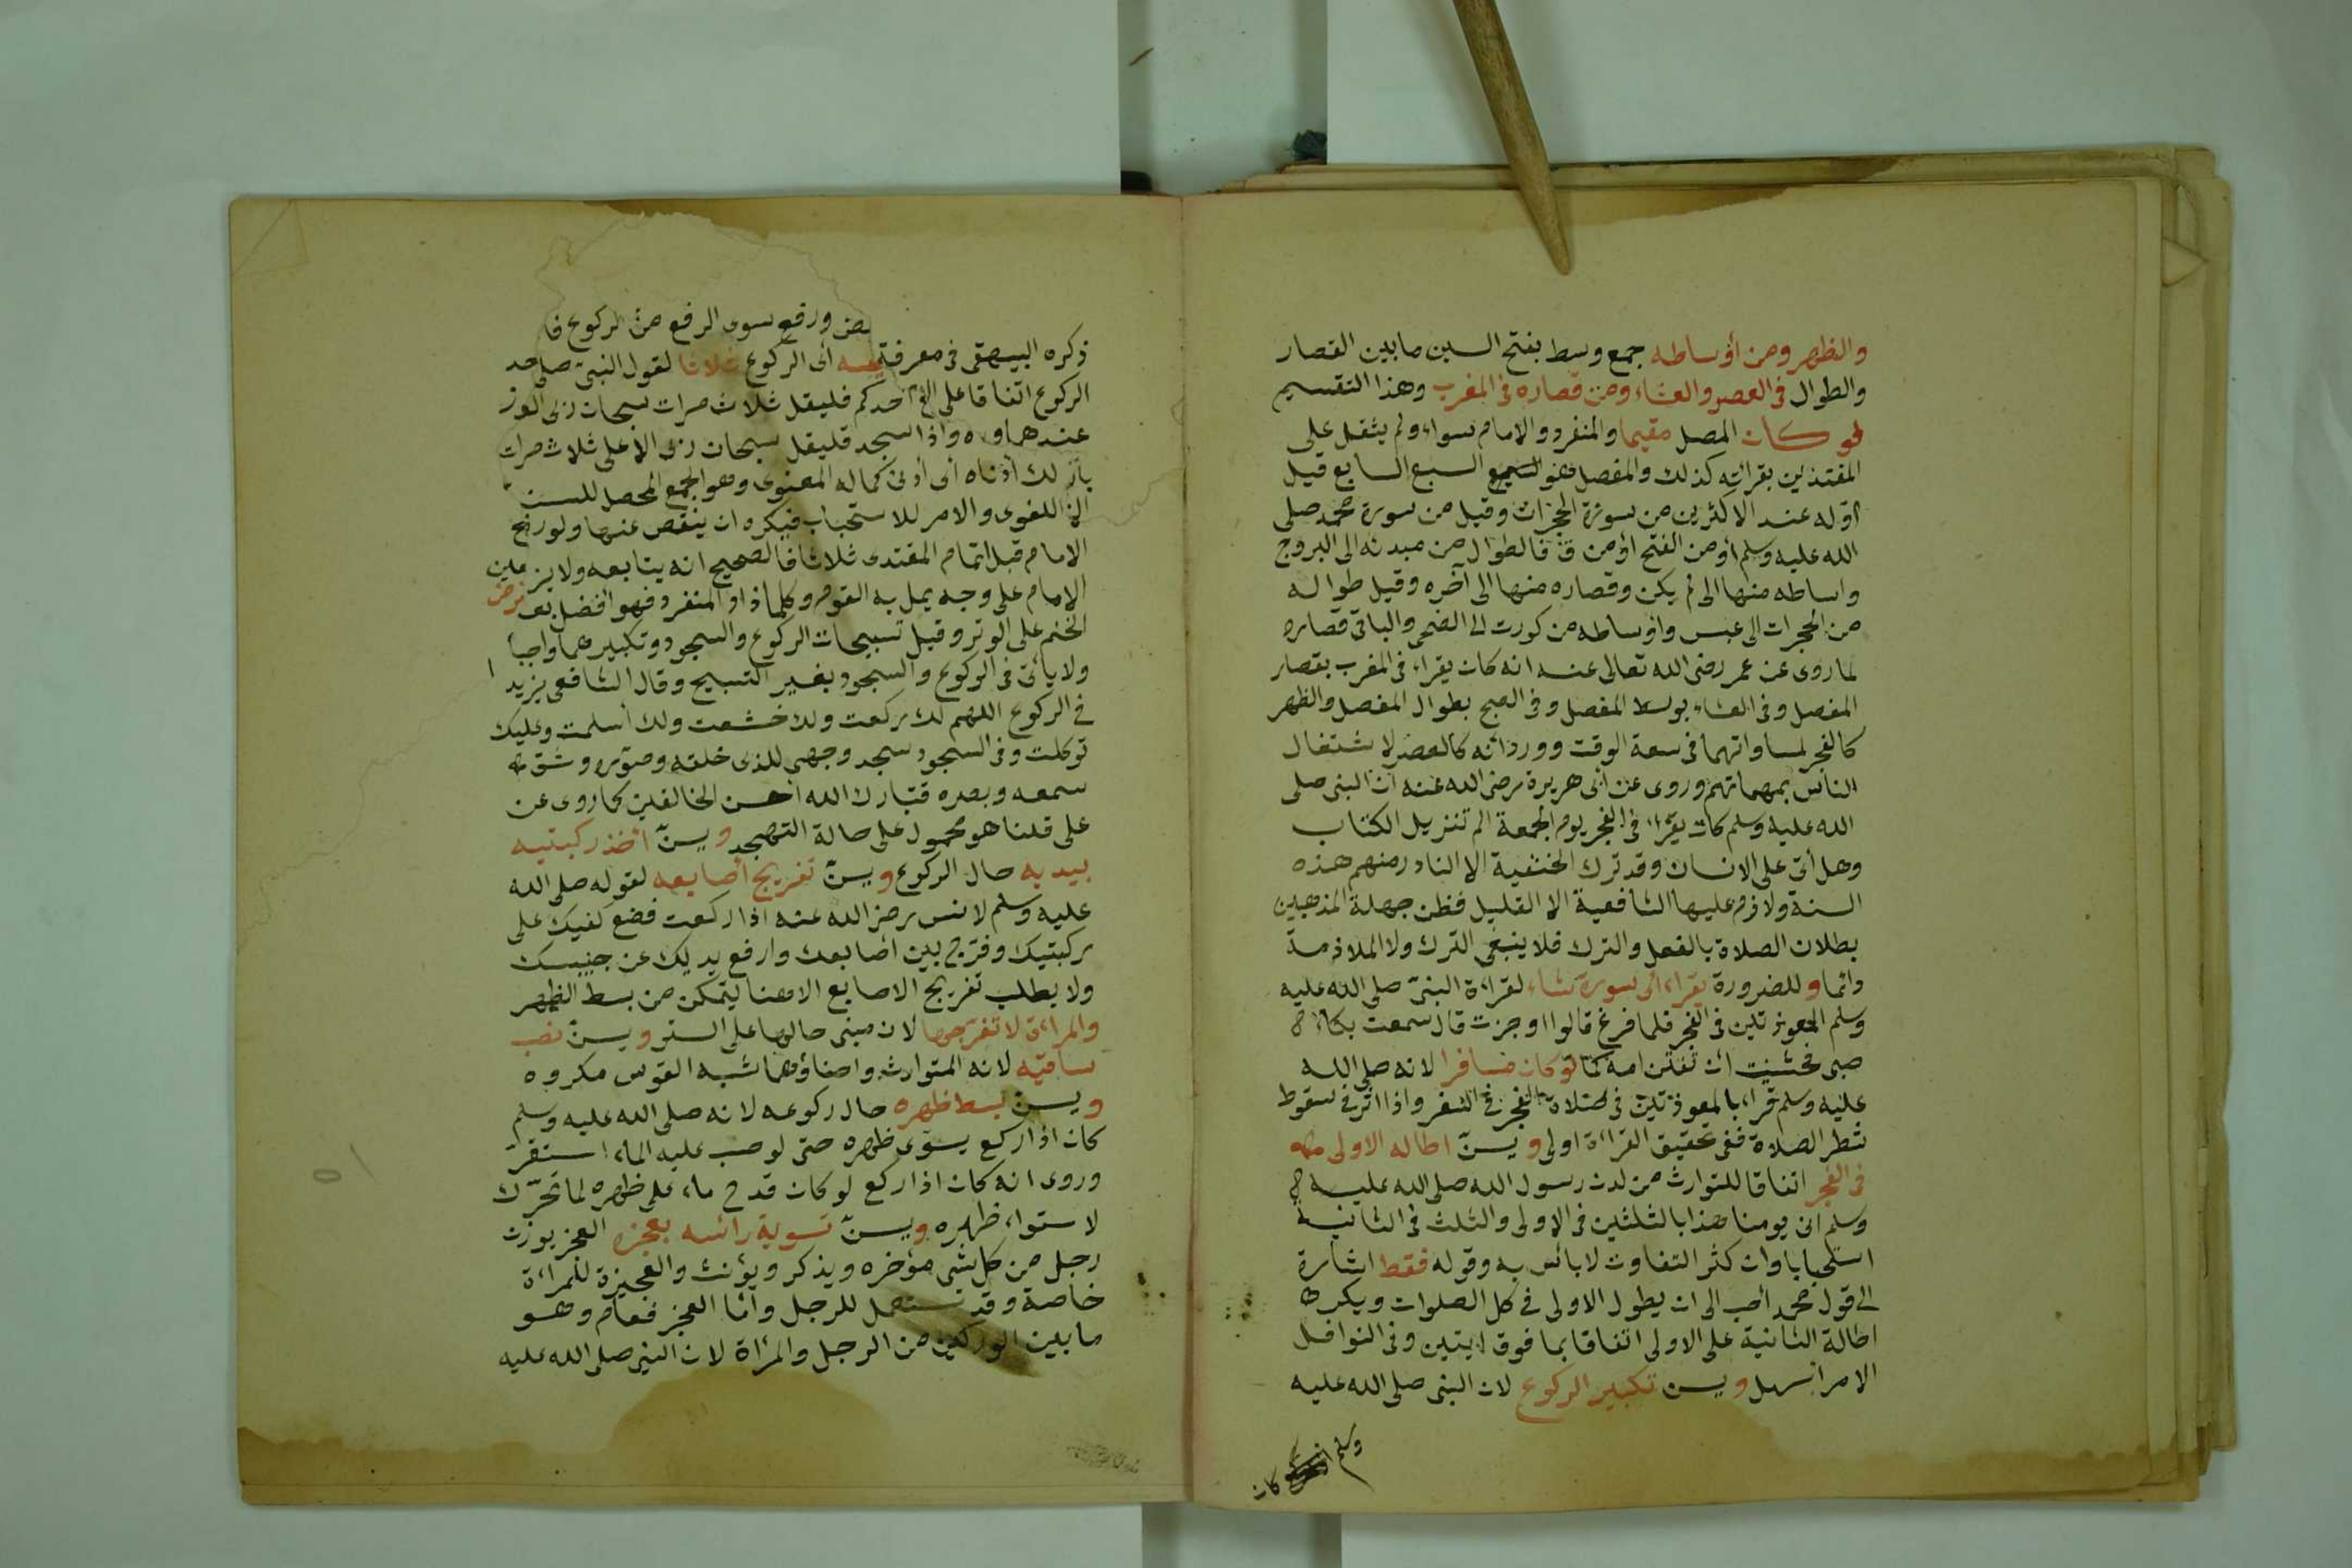 والظهر ومن أوساطه جمع وسط بفتح السين ما بين القصار
والطوال في العصر والعشاء ومن قصاره في المغرب وهذا التقسيم
لو كان المصل مقيما والمنفرد والامام سواء ولم يثقل على
المقتدين بقرائته كذلك والمفصل هو السبع السابع قيل
أوله عند الاكثرين من سورة الحجرات وقيل من سورة محمد صلى
الله عليه وسلم أو من الفتح أو من ق فالطوال من مبدئه الى البروج
واساطه منها الى لم يكن وقصاره منها الى آخره وقيل طواله
من الحجرات الى عبس واوساطه من كورت الى الضحى والباقي قصاره
لما روى عن عمر رضى الله تعالى عنه انه كان يقراء في المغرب بقصار
المفصل وفي العشاء بوسط المفصل وفي الصبح بطوال المفصل والظهر
كالفجر لمساواتهما في سعة الوقت وورد انه كالعصر لاشتغال
الناس بمهماتهم وروى عن أبى هريرة رضى الله عنه أن النبى صلى
الله عليه وسلم كان يقرأ في الفجر يوم الجمعة الم تنزيل الكتاب
وهل أتى على الانسان وقد ترك الحنفية الا النادر منهم هذه
السنة ولازم عليها الشافعية الا القليل فظن جهلة المذهبين
بطلان الصلاة بالفعل والترك فلا ينبغي الترك ولا الملازمة
دائما وللضرورة يقراء أى سورة شاء لقراءة النبيّ صلى الله عليه
وسلم المعوذتين في الفجر فلما فرغ قالوا اوجزت قال سمعت بكاء
صبى فخشيت أن تفتتن امه كما لو كان مسافرا لانه صلى الله
عليه وسلم قراء بالمعوذتين في صلاة الفجر في السفر واذا اثر في سقوط
شطر الصلاة ففي تخفيق القراءة اولى ويسنّ اطالة الاولى
في الفجر اتفاقا للتوارث من لدن رسول الله صلى الله عليه
وسلم الى يومنا هذا بالثلثين في الاولى والثلث في الثانية
استحبابا وان كثر التفاوت لابأس به وقوله فقط اشارة
الى قول محمد أحب الى ان يطول الاولى في كل الصلوات ويكره
اطالة الثانية على الاولى اتفاقا بما فوق ايتين وفي النوافل
الامر أسهل ويسن تكبير الركوع لان النبى صلى الله عليه
وسلم كان
خفض ورفع سوى الرفع من الركوع
ذكره البيهقى في معرفة أى الركوع ثلاثا لقول النبيّ صلى
الركوع اتفاقا على احدكم فليقل ثلاث مرات سبحان ربى
واذا سجد فليقل سبحان ربى الاعلى ثلاث مرات
أدناه أى أدنى كماله المعنوى وهو الجمع المحصل للسنة
اللغوى والامر للاستحباب فيكره ان ينقص عنها ولو رفع
الامام قبل اتمام المقتدى ثلاثا فالصحيح انه يتابعه ولا يزيد
الامام على وجه يمل به القوم وكلما زاد المنفرد فهو أفضل
الختم على الوتر وقيل تسبيحات الركوع والسجود وتكبيرهما واجبا
ولا يأتى في الركوع والسجود بغير التسبيح وقال الشافعى يزيد
في الركوع اللهم لك ركعت ولك خشعت ولك أسلمت وعليك
توكلت وفي السجود سجد وجهى للذى خلقه وصوّره وشق
سمعه وبصره فتبارك الله أحسن الخالقين كما روى عن
على قلنا هو محمول على حالة التهجد ويسنّ أخذ ركبتيه
بيديه حال الركوع ويسنّ تفريج أصابعه لقوله صلى الله
عليه وسلم لانس رضى الله عنه اذا ركعت فضع كفيك على
ركبتيك وفرّج بين أصابعك وارفع يديك عن جنبيك
ولا يطلب تفريج الاصابع الا هنا ليتمكن من بسط الظهر
والمراءة لا تفرّجها لان مبنى حالها على الستر ويسنّ نصب
ساقيه لانه المتوارث واحناؤهما شبه القوس مكروه
ويسنّ بسط ظهره حال ركوعه لانه صلى الله عليه وسلم
كان اذا ركع يسوّى ظهره حتى لو صب عليه الماء استقرّ
وروى انه كان اذا ركع لو كان قدح ماء على ظهره لما تحرّك
لاستواء ظهره ويسنّ تسوية رأسه بعجزه العجز بوزن
رجل من كل شئ مؤخره ويذكر ويؤنث والعجيزة للمراءة
خاصة وقد تستعمل للرجل وأما العجز فعام وهو
ما بين الوركين من الرجل والمرأة لان النبي صلى الله عليه